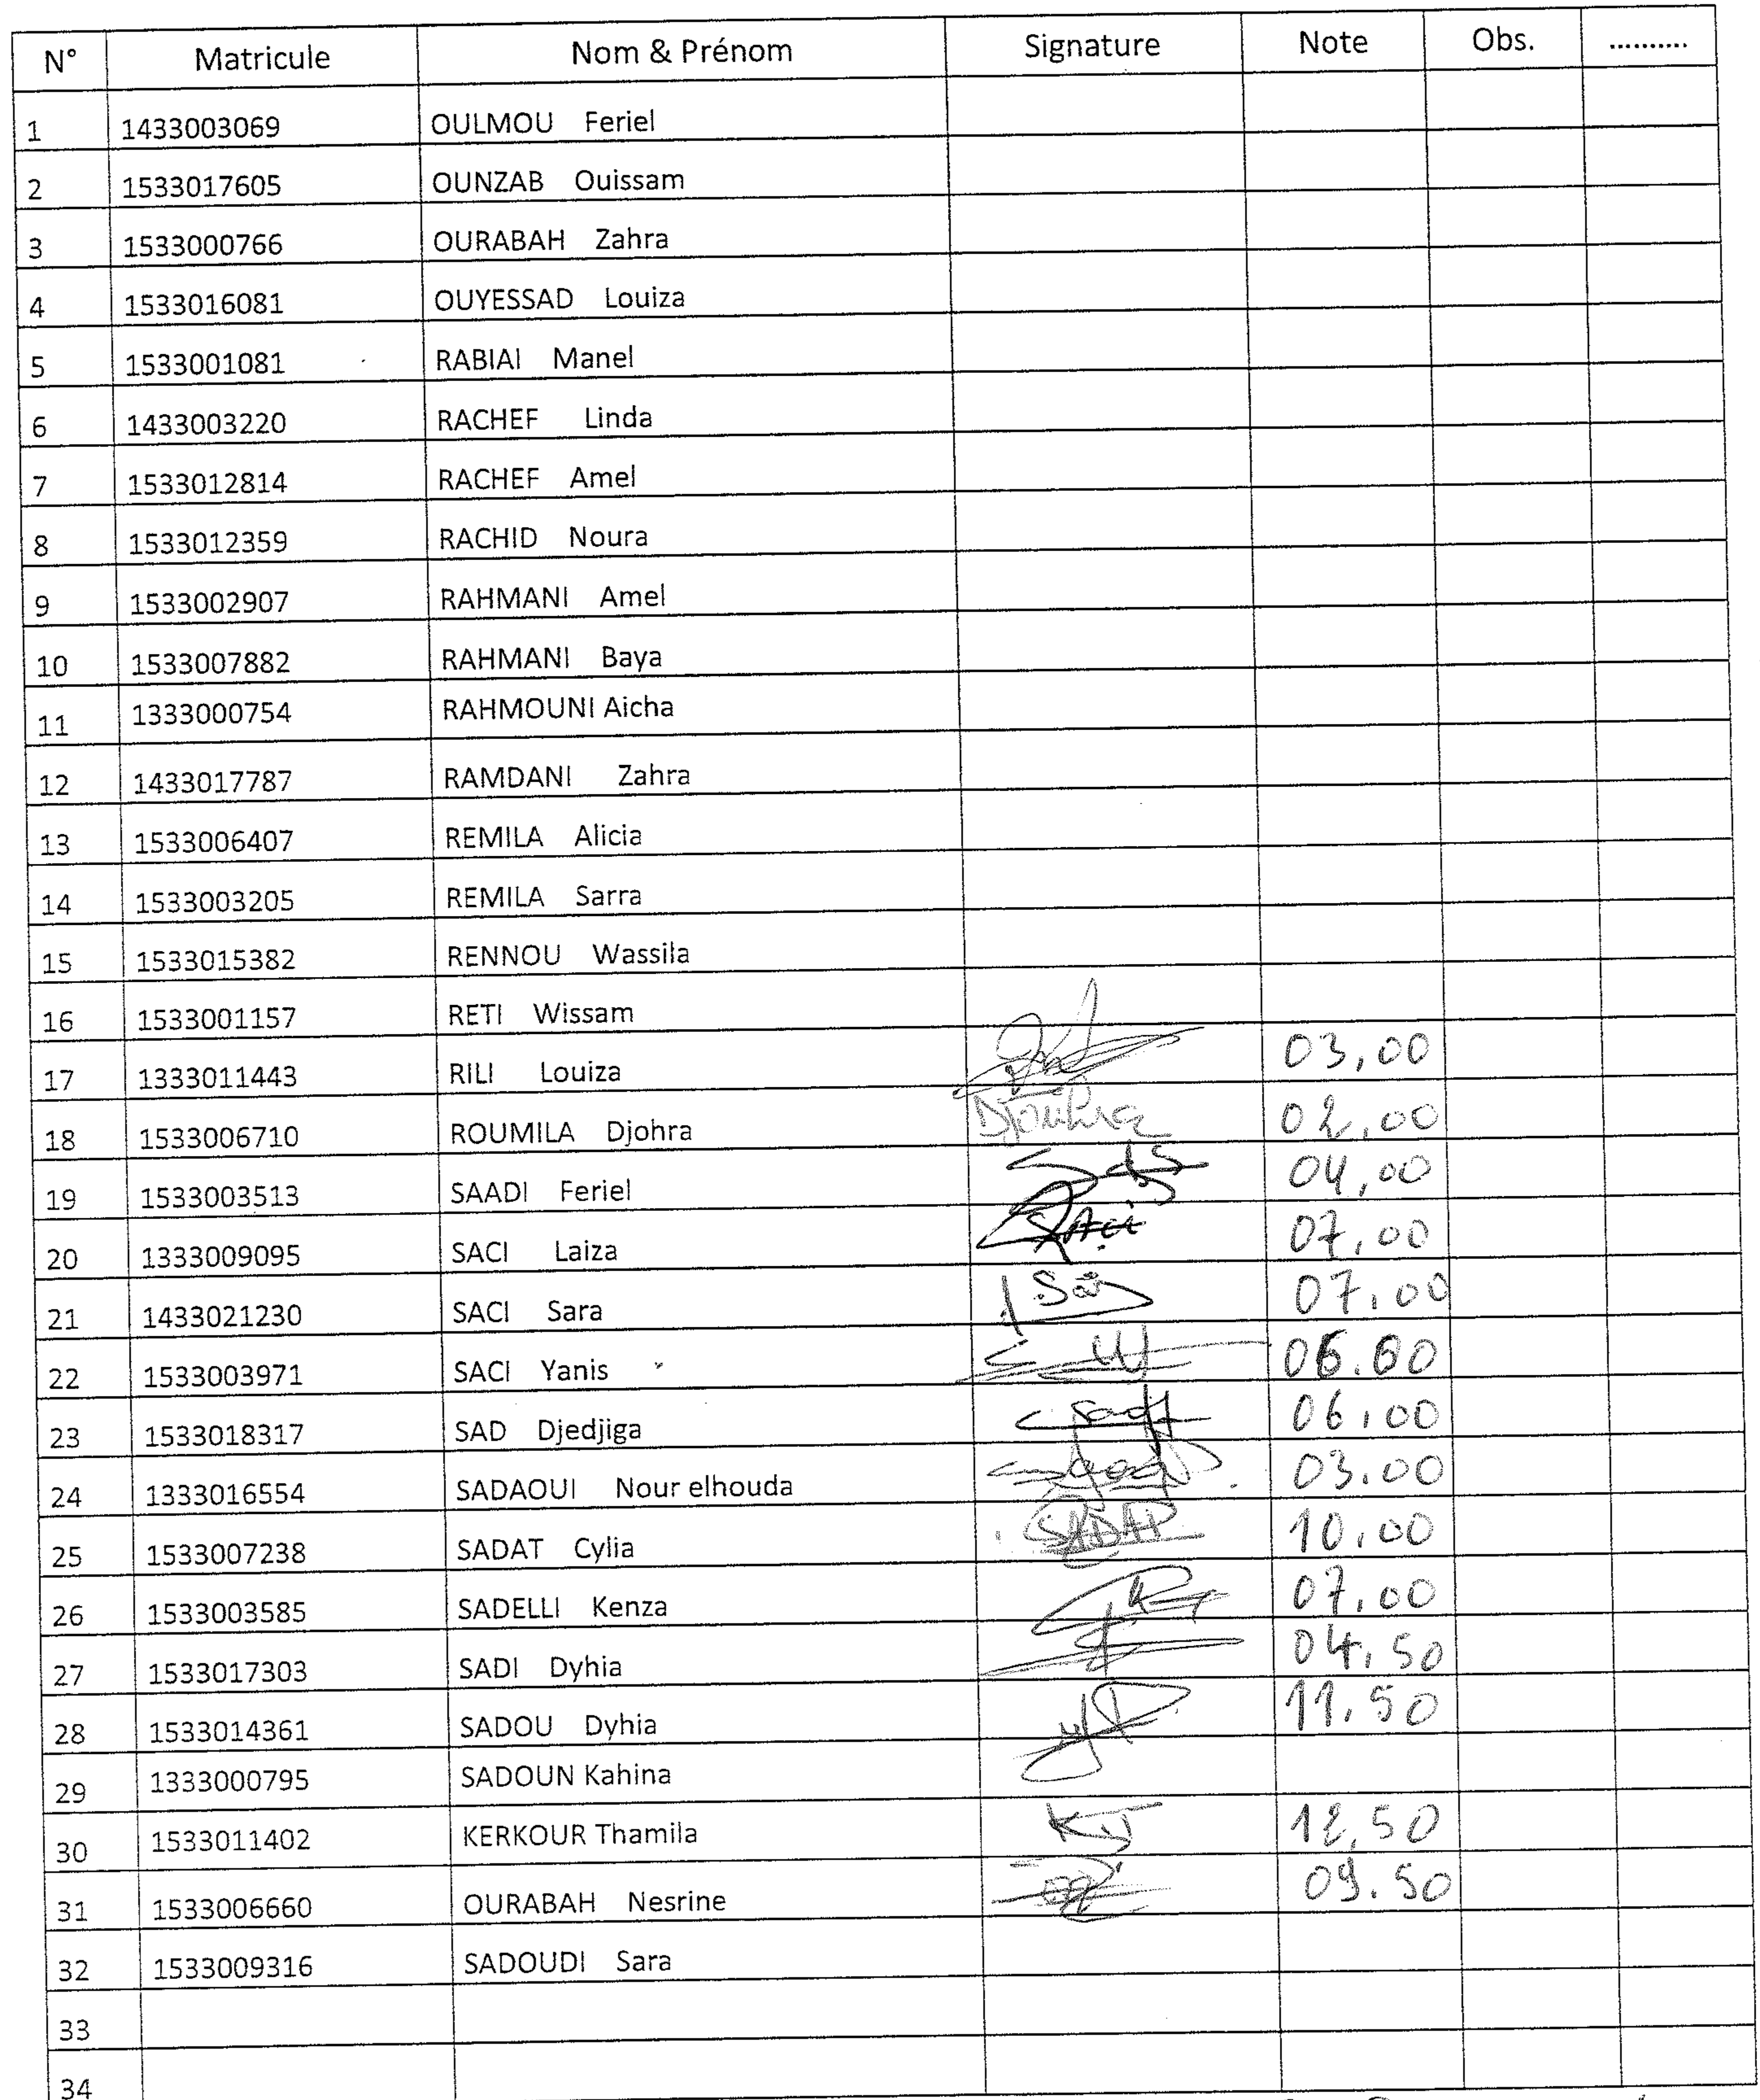 N° Matricule Nom & Prénom Signature Note Obs. ..........
1 1433003069 OULMOU Feriel
2 1533017605 OUNZAB Ouissam
3 1533000766 OURABAH Zahra
4 1533016081 OUYESSAD Louiza
5 1533001081 RABIAI Manel
6 1433003220 RACHEF Linda
7 1533012814 RACHEF Amel
8 1533012359 RACHID Noura
9 1533002907 RAHMANI Amel
10 1533007882 RAHMANI Baya
11 1333000754 RAHMOUNI Aicha
12 1433017787 RAMDANI Zahra
13 1533006407 REMILA Alicia
14 1533003205 REMILA Sarra
15 1533015382 RENNOU Wassila
16 1533001157 RETI Wissam
17 1333011443 RILI Louiza 03,00
18 1533006710 ROUMILA Djohra 02,00
19 1533003513 SAADI Feriel 04,00
20 1333009095 SACI Laiza SACi 07,00
21 1433021230 SACI Sara 07,00
22 1533003971 SACI Yanis 06.00
23 1533018317 SAD Djedjiga 06,00
24 1333016554 SADAOUI Nour elhouda 03.00
25 1533007238 SADAT Cylia SADAT 10,00
26 1533003585 SADELLI Kenza 07,00
27 1533017303 SADI Dyhia 04,50
28 1533014361 SADOU Dyhia 11,50
29 1333000795 SADOUN Kahina
30 1533011402 KERKOUR Thamila KT 12,50
31 1533006660 OURABAH Nesrine 09.50
32 1533009316 SADOUDI Sara
33
34